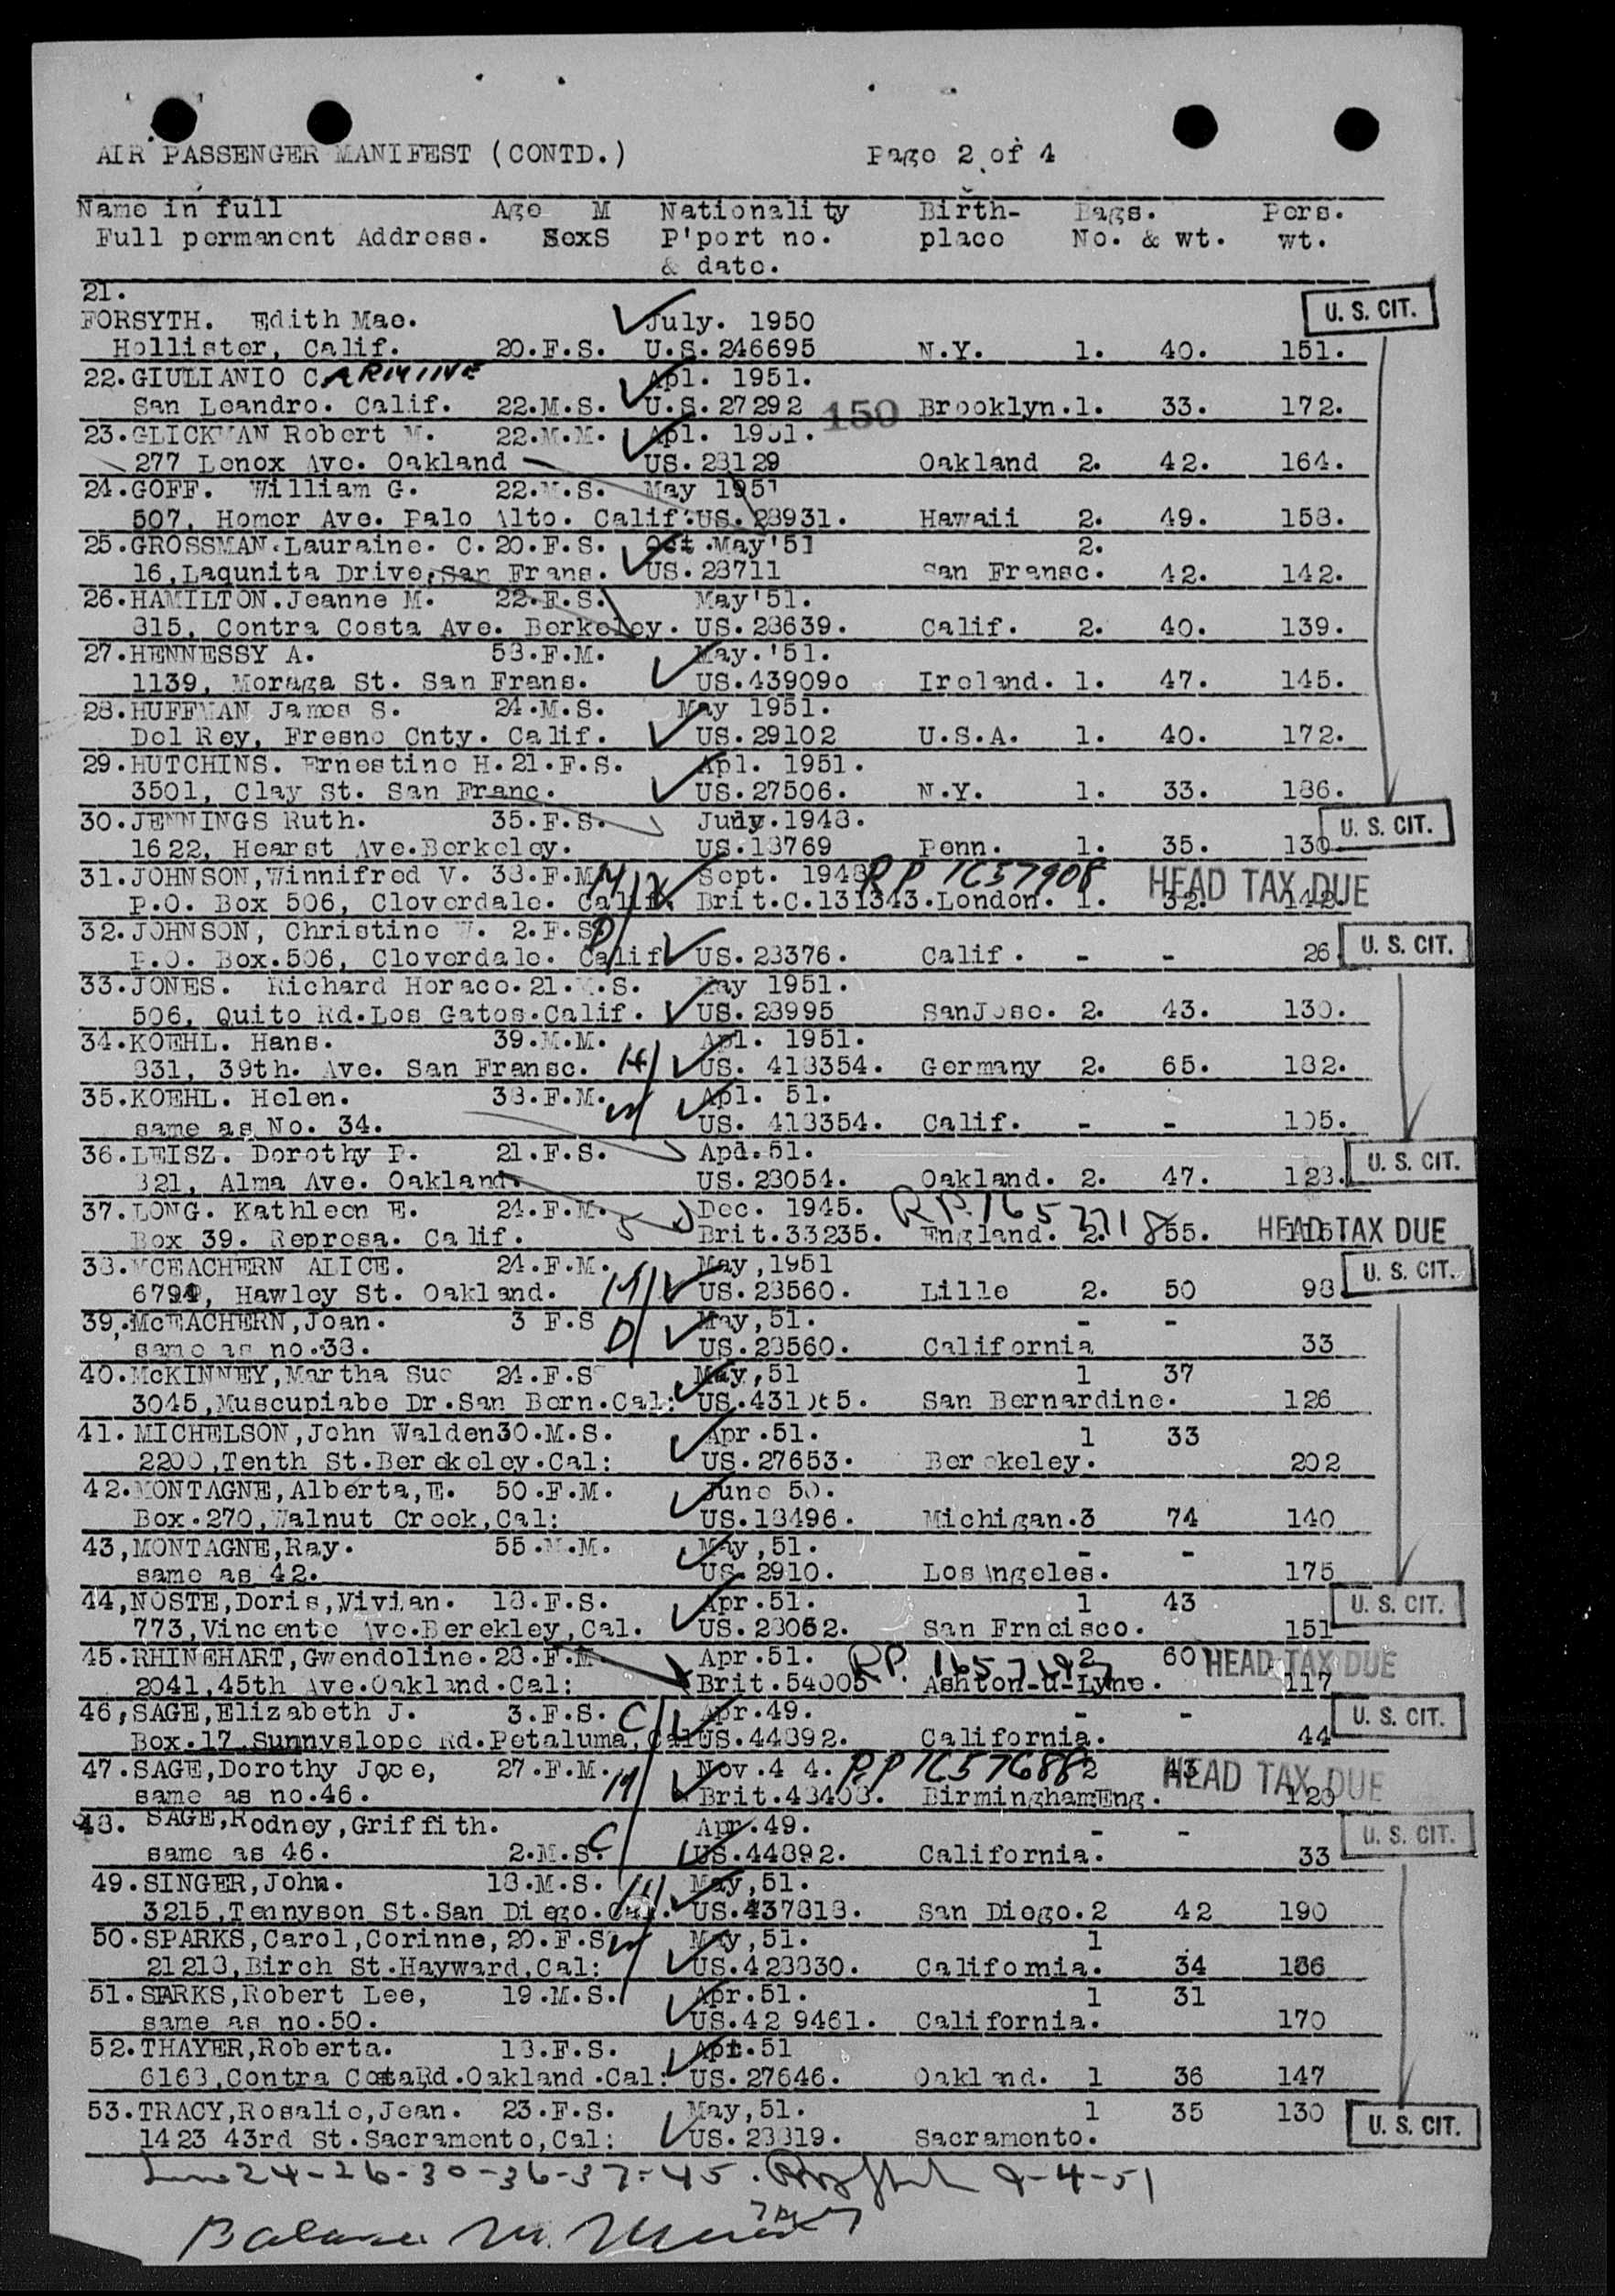 AIR PASSENGER MANIFEST (CONTD.) Page 2 of 4
Name in full Age M Nationality Birth- Bags. Pers.
Full permanent Address. SexS P'port no. place No. & wt. wt.
& date.
21.
FORSYTH. Edith Mae. July. 1950 U. S. CIT.
Hollister, Calif. 20.F.S. U.S.246695 N.Y. 1. 40. 151.
22.GIULIANIO CARMINE Apl. 1951.
San Leandro. Calif. 22.M.S. U.S.27292 150 Brooklyn.1. 33. 172.
23.GLICKMAN Robert M. 22.M.M. Apl. 1951.
277 Lenox Ave. Oakland US.28129 Oakland 2. 42. 164.
24.GOFF. William G. 22.M.S. May 1951
507, Homer Ave. Palo Alto. Calif.US.28931. Hawaii 2. 49. 158.
25.GROSSMAN.Lauraine. C.20.F.S. Oct.May'51 2.
16,Laqunita Drive,San Frans. US.28711 San Fransc. 42. 142.
26.HAMILTON.Jeanne M. 22.F.S. May'51.
815, Contra Costa Ave. Berkeley. US.28639. Calif. 2. 40. 139.
27.HENNESSY A. 58.F.M. May.'51.
1139, Moraga St. San Frans. US.439090 Ireland. 1. 47. 145.
28.HUFFMAN James S. 24.M.S. May 1951.
Del Rey, Fresno Cnty. Calif. US.29102 U.S.A. 1. 40. 172.
29.HUTCHINS. Ernestine H.21.F.S. Apl. 1951.
3501, Clay St. San Franc. US.27506. N.Y. 1. 33. 186.
30.JENNINGS Ruth. 35.F.S. July.1948. U. S. CIT.
1622, Hearst Ave.Berkeley. US.18769 Penn. 1. 35. 130
31.JOHNSON,Winnifred V. 38.F.M. M Sept. 1948 RP 1657908 HEAD TAX DUE
P.O. Box 506, Cloverdale. Calif. Brit.C.131343.London. 1. 32. 142.
32.JOHNSON, Christine W. 2.F.S. D U. S. CIT.
P.O. Box.506, Cloverdale. Calif US.28376. Calif. - - 26
33.JONES. Richard Horace.21.M.S. May 1951.
506, Quito Rd.Los Gatos.Calif. US.28995 SanJose. 2. 43. 130.
34.KOEHL. Hans. 39.M.M. H Apl. 1951.
831, 39th. Ave. San Fransc. US. 418354. Germany 2. 65. 182.
35.KOEHL. Helen. 38.F.M. W Apl. 51.
same as No. 34. US. 418354. Calif. - - 105.
36.LEISZ. Dorothy P. 21.F.S. Apd.51. U. S. CIT.
821, Alma Ave. Oakland. US.28054. Oakland. 2. 47. 128.
37.LONG. Kathleen E. 24.F.M. Dec. 1945. RP.1657718
Box 39. Represa. Calif. Brit.33235. England. 2. 55. 115 HEAD TAX DUE
38.MCEACHERN ALICE. 24.F.M. M May,1951 U. S. CIT.
6794, Hawley St. Oakland. US.28560. Lille 2. 50 98
39,.McEACHERN,Joan. 3 F.S D May,51. - -
same as no.38. US.28560. California 33
40.McKINNEY,Martha Sue 24.F.S May,51 1 37
3045,Muscupiabe Dr.San Bern.Cal: San Bernardine. 126
41. MICHELSON,John Walden30.M.S. Apr.51. 1 33
2200,Tenth St.Berekeley.Cal: US.27653. Berekeley. 202
42.MONTAGNE,Alberta,E. 50.F.M. June 50.
Box.270,Walnut Creek,Cal: US.18496. Michigan.3 74 140
43,MONTAGNE,Ray. 55.M.M. May,51. - -
same as 42. US.2910. LosAngeles. 175
44,NOSTE,Doris,Vivian. 18.F.S. Apr.51. 1 43 U. S. CIT.
773,Vincente Ave.Berekley,Cal. US.28062. San Frncisco. 151
45.RHINEHART,Gwendoline.28.F.M. Apr.51. RP. 2 60 HEAD TAX DUE
2041,45th Ave.Oakland.Cal: Brit.54005 Ashton-u-Lyne. 117
46,SAGE,Elizabeth J. 3.F.S. C Apr.49. - - U. S. CIT.
Box.17,Sunnyslope Rd.Petaluma,Cal US.44892. California. 44
47.SAGE,Dorothy Joyce, 27.F.M. M Nov.4 4. RP 1657688 2 43 HEAD TAX DUE
same as no.46. Brit.48408. BirminghamEng. 120
48. SAGE,Rodney,Griffith. C Apr.49. - - U. S. CIT.
same as 46. 2.M.S. US.44892. California. 33
49.SINGER,John. 18.M.S. May,51.
3215,Tennyson St.San Diego.Cal. US.437818. San Diego.2 42 190
50.SPARKS,Carol,Corinne,20.F.S. W May,51. 1
21218,Birch St.Hayward,Cal: US.428830. California. 34 136
51.SPARKS,Robert Lee, 19.M.S. Apr.51. 1 31
same as no.50. US.42 9461. California. 170
52.THAYER,Roberta. 18.F.S. Apr.51
6168,Contra CostaRd.Oakland.Cal: US.27646. Oakland. 1 36 147
53.TRACY,Rosalie,Jean. 23.F.S. May,51. 1 35 130 U. S. CIT.
1423 43rd St.Sacramento,Cal: US.28819. Sacramento.
Line 24-26-30-36-37-45. 9-4-51
Balance M.